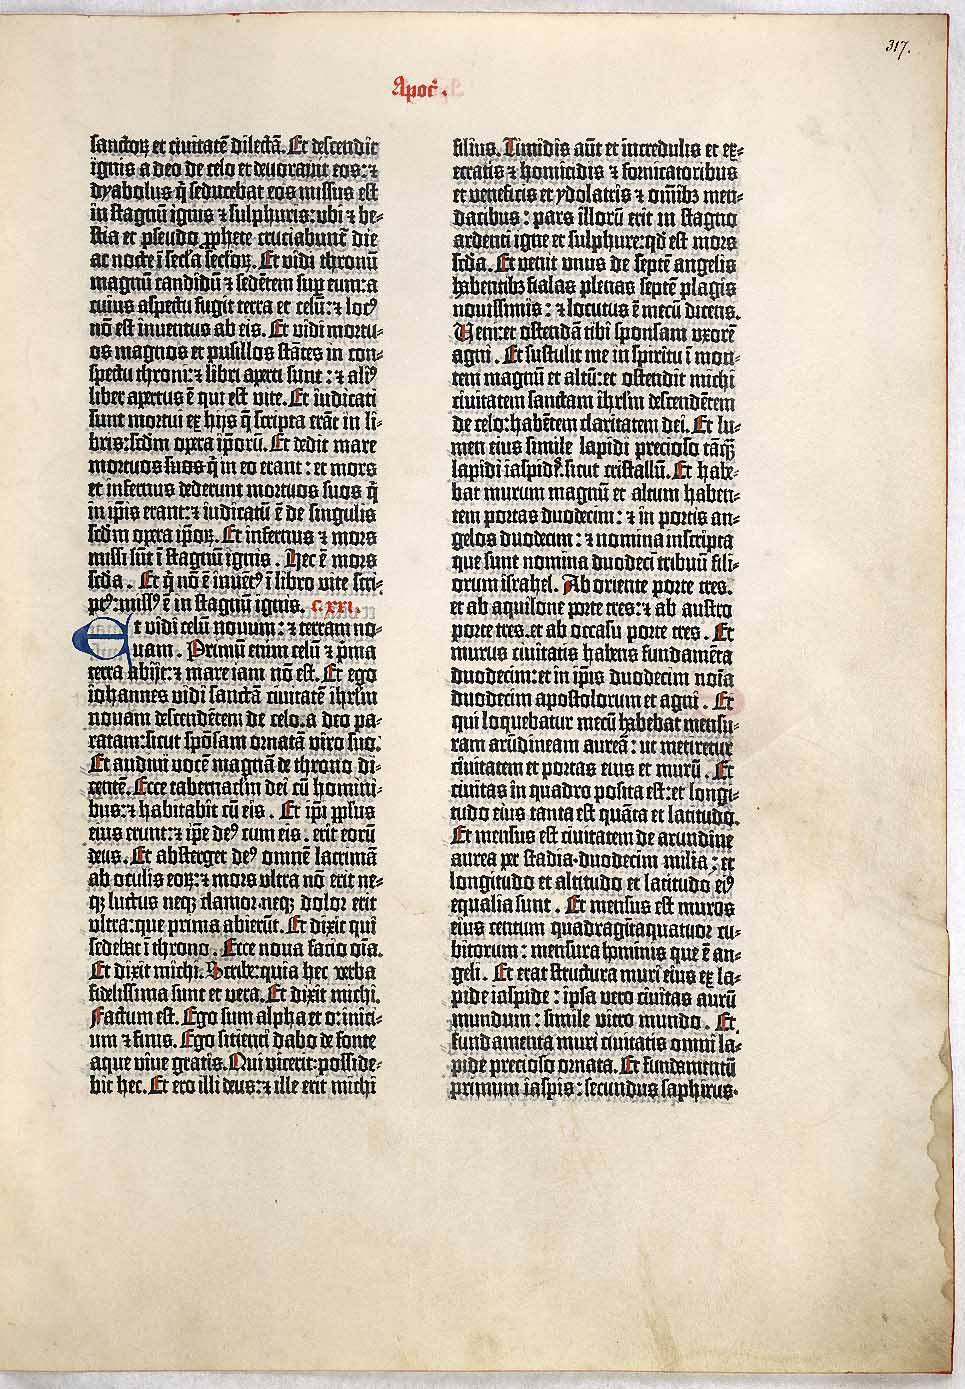 317.
Apoc̄.
sanctoꝝ et ciuitatē dilectā. Et descendit
ignis a deo de celo et deuorauit eos: ⁊
dyabolus q̄ seducebat eos missus est
in stagnū ignis ⁊ sulphuris: vbi ⁊ be-
stia et pseudo ꝓphete cruciabunt̄ die
ac nocte ī sc̄la sc̄loꝝ. Et vidi thronū
magnū candidū ⁊ sedētem suꝑ eum: a
cuius aspectu fugit terra et celū: ⁊ locꝰ
nō est inuentus ab eis. Et vidi mortu-
os magnos et pusillos stātes in con-
spectu throni: ⁊ libri aperti sunt: ⁊ aliꝰ
liber apertus ē qui est vite. Et iudicati
sunt mortui ex hijs q̄ scripta erāt in li-
bris: scd̄m opera ip̄orū. Et dedit mare
mortuos suos q̄ in eo erant: et mors
et infernus dederunt mortuos suos q̄
in ip̄is erant: ⁊ iudicatū ē de singulis
scd̄m opera ip̄oꝝ. Et infernus ⁊ mors
missi sūt ī stagnū ignis. Hec ē mors
scd̄a. Et q̄ nō ē inuētꝰ ī libro vite scri-
ptꝰ: missꝰ ē in stagnū ignis. C. XXI.
Et vidi celū nouum: ⁊ terram no-
uam. Primū enim celū ⁊ p̄ma
terra abijt: ⁊ mare iam nō est. Et ego
iohannes vidi sanctā ciuitatē ihrlm̄
nouam descendētem de celo. a deo pa-
ratam: sicut spōsam ornatā viro suo.
Et audiui vocē magnā de throno di-
centē. Ecce tabernaclm̄ dei cū homini-
bus: ⁊ habitabit cū eis. Et ip̄i pp̄lus
eius erunt: ⁊ ip̄e deꝰ cum eis. erit eorū
deus. Et absterget deꝰ omnē lacrimā
ab oculis eoꝝ: ⁊ mors vltra nō erit ne-
qꝫ luctus neqꝫ clamor. neqꝫ dolor erit
vltra: que prima abierūt. Et dixit qui
sedebat ī throno. Ecce noua facio oīa.
Et dixit michi. Scribe: quia hec verba
fidelissima sunt et vera. Et dixit michi.
Factum est. Ego sum alpha et o: inici-
um ⁊ finis. Ego sitienti dabo de fonte
aque viue gratis. Qui vicerit: posside-
bit hec. Et ero illi deus: ⁊ ille erit michi
filius. Timidis aūt et incredulis et ex-
ecratis ⁊ homicidis ⁊ fornicatoribus
et veneficis et ydolatris ⁊ om̄ibꝫ men-
dacibus: pars illorū erit in stagno
ardenti igne et sulphure: qd̄ est mors
scd̄a. Et venit vnus de septē angelis
habentibꝫ fialas plenas septē plagis
nouissimis: ⁊ locutus ē mecū dicens.
Veni: et ostendā tibi sponsam vxorē
agni. Et sustulit me in spiritu ī mon-
tem magnū et altū: et ostendit michi
ciuitatem sanctam ihrlm̄ descendētem
de celo: habētem claritatem dei. Et lu-
men eius simile lapidi precioso tāqꝫ
lapidi iaspidꝭ. sicut cristallū. Et habe-
bat murum magnū et altum haben-
tem portas duodecim: ⁊ in portis an-
gelos duodecim: ⁊ nomina inscripta
que sunt nomina duodecī tribuū fili-
orum israhel. Ab oriente porte tres.
et ab aquilone porte tres: ⁊ ab austro
porte tres. et ab occasu porte tres. Et
murus ciuitatis habens fundamēta
duodecim: et in ip̄is duodecim noīa
duodecim apostolorum et agni. Et
qui loquebatur mecū habebat mensu-
ram arūdineam aureā: ut metiretur
ciuitatem et portas eius et murū. Et
ciuitas in quadro posita est: et longi-
tudo eius tanta est quāta et latitudo.
Et mensus est ciuitatem de arundine
aurea per stadia duodecim milia; et
longitudo et altitudo et latitudo eiꝰ
equalia sunt. Et mensus est muros
eius centum quadragītaquatuor cu-
bitorum: mensura hominis que ē an-
geli. Et erat structura muri eius ex la-
pide iaspide: ipsa vero ciuitas aurū
mundum: simile vitro mundo. Et
fundamenta muri ciuitatis omni la-
pide precioso ornata. Et fundamentū
primum iaspis: secundus saphirus.